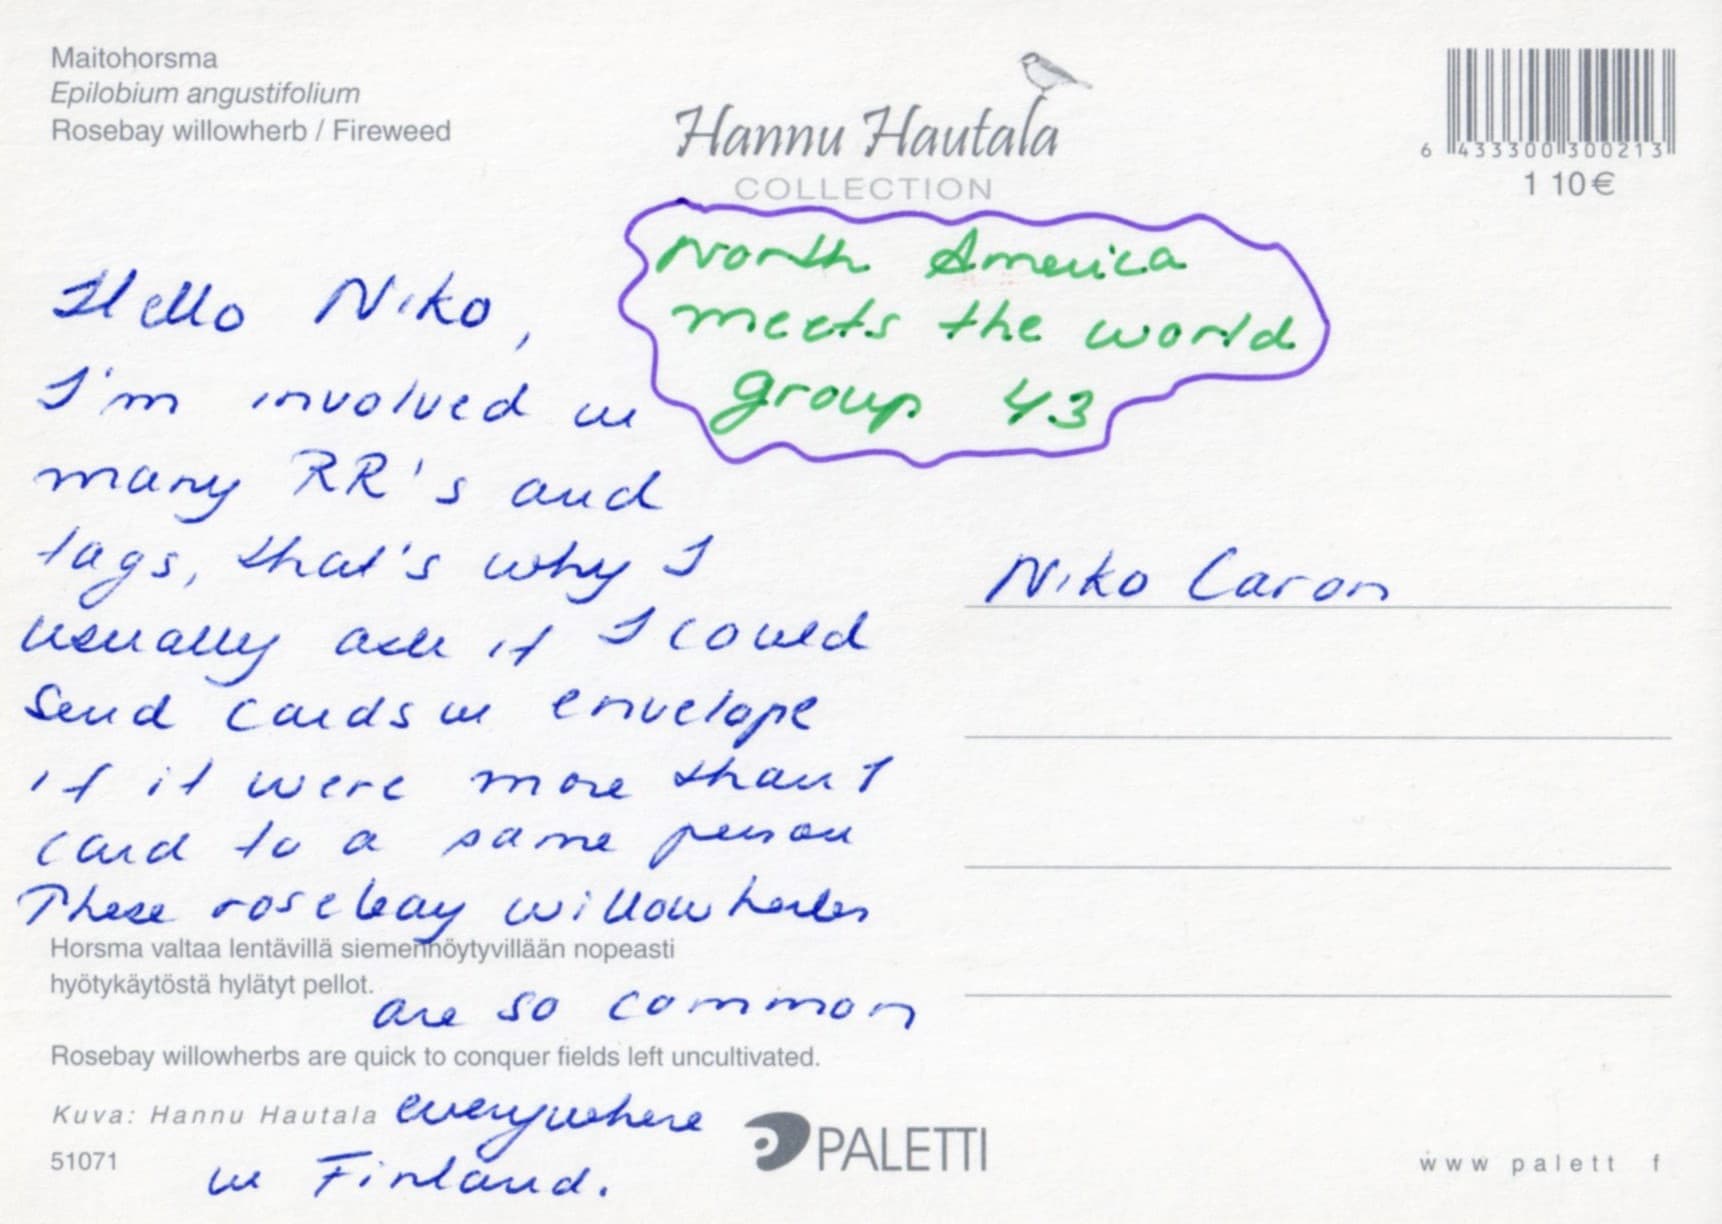 Maitohorsma
Epilobium angustifolium
Rosebay willowherb / Fireweed
Hannu Hautala
COLLECTION
6 433300 300213
1 10€
North America
meets the world
group 43
Hello Niko,
I'm involved in
many RR's and
tags, that's why I
usually ask if I could
send cards in envelope
if it were more than 1
card to a same person
These rosebay willowherbs
Horsma valtaa lentävillä siemenhöytyvillään nopeasti
hyötykäytöstä hylätyt pellot.
are so common
Rosebay willowherbs are quick to conquer fields left uncultivated.
Kuva: Hannu Hautala
everywhere
51071
in Finland.
PALETTI
Niko Caron
www palett f